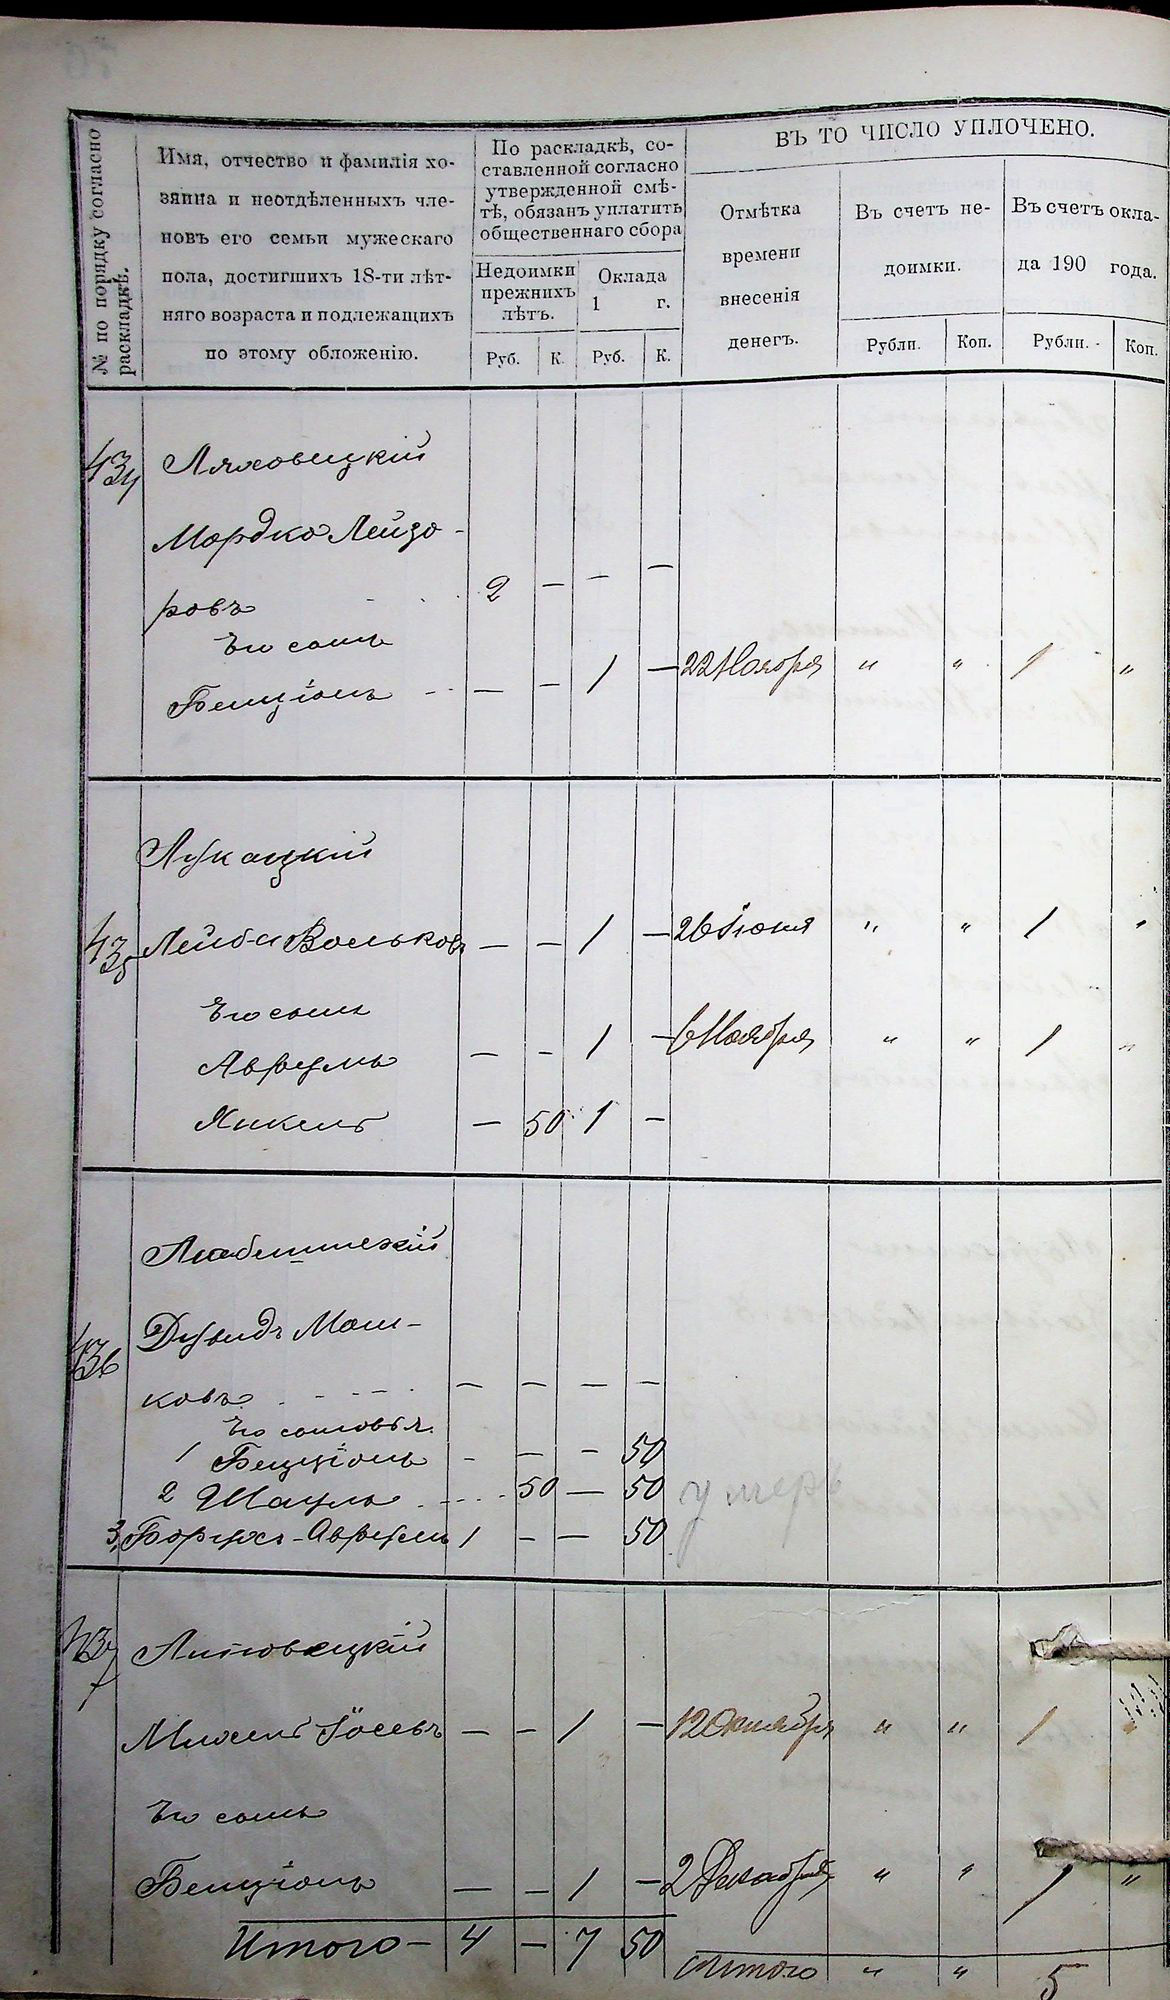 № по порядку согласно раскладкѣ.
Имя, отчество и фамилія хо-
зяина и неотдѣленныхъ чле-
новъ его семьи мужескаго
пола, достигшихъ 18-ти лѣт-
няго возраста и подлежащихъ
по этому обложенію.
По раскладкѣ, со-
ставленной согласно
утвержденной смѣ-
тѣ, обязанъ уплатить
общественнаго сбора
Недоимки
прежнихъ
лѣтъ.
Оклада
1 г.
Руб. К. Руб. К.
ВЪ ТО ЧИСЛО УПЛОЧЕНО.
Отмѣтка
времени
внесенія
денегъ.
Въ счетъ не-
доимки.
Въ счетъ окла-
да 190 года.
Рубли. Коп. Рубли. Коп.
434 Ляховицкій
Мордко Лейзо-
ровъ 2 — — —
Его сынъ
Бенціонъ — — 1 — 22 Ноября " " 1 "
Лукацкій
435 Лейба Вольковъ — — 1 — 26 Іюня " " 1 "
Его сынъ
Аврумъ — — 1 — 6 Ноября " " 1 "
Янкель — 50 1 —
Любешпскій
436 Дувидъ Мош-
ковъ — — — —
Его сыновья
1 Бенціонъ - — — 50
2 Шаулъ 50 — 50 умеръ
3, Борухъ-Аврумъ 1 — — 50
437 Литовецкій
Михель Іосевъ — — 1 — 12 Октября " " 1 "
Его сынъ
Бенціонъ — — 1 — 2 Декабря " " 1 "
Итого — 4 — 7 50
Итого " " 5